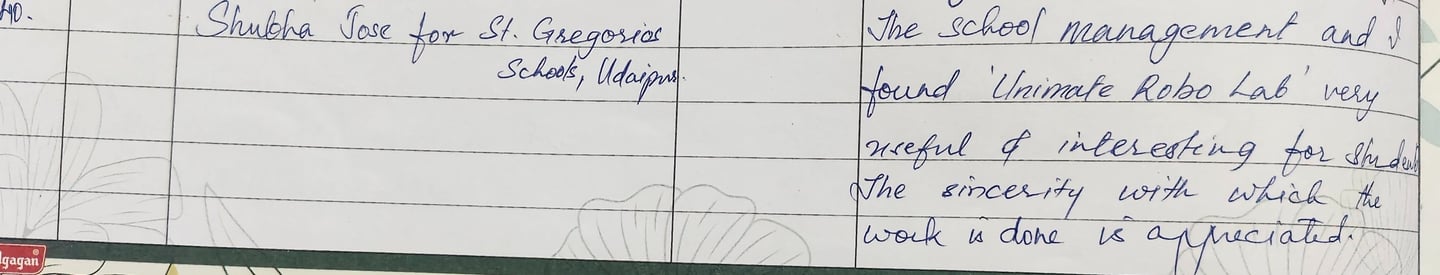 Shubha Jose for St. Gregorios
Schools, Udaipur.
The school management and I
found 'Unimate Robo Lab' very
useful & interesting for student
The sincerity with which the
work is done is appreciated.
gagan®